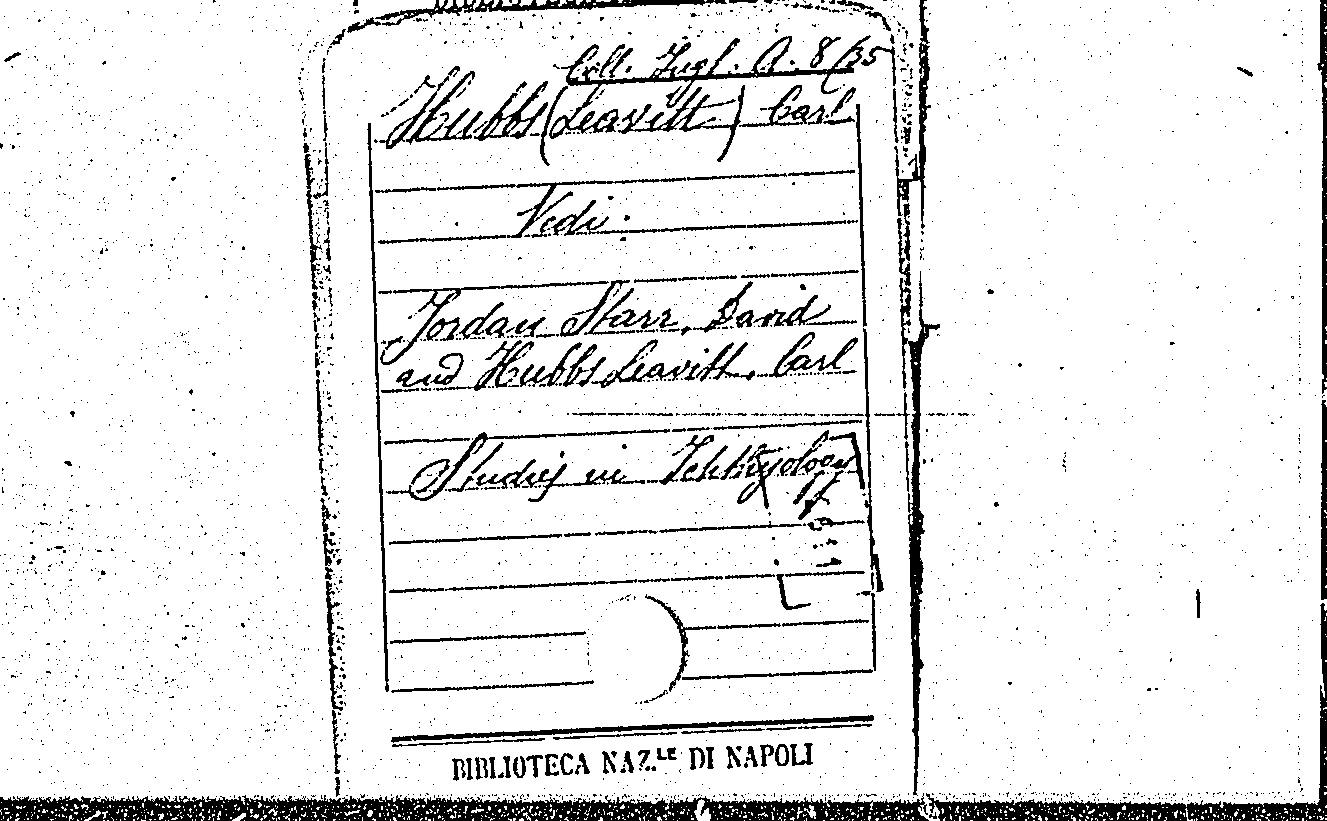 Coll. Ingl. A. 8/35
Hubbs (Leavitt) Carl
Vedi:
Jordan Starr, David
and Hubbs Leavitt, Carl
Studies in Ichthyology
BIBLIOTECA NAZ.LE DI NAPOLI